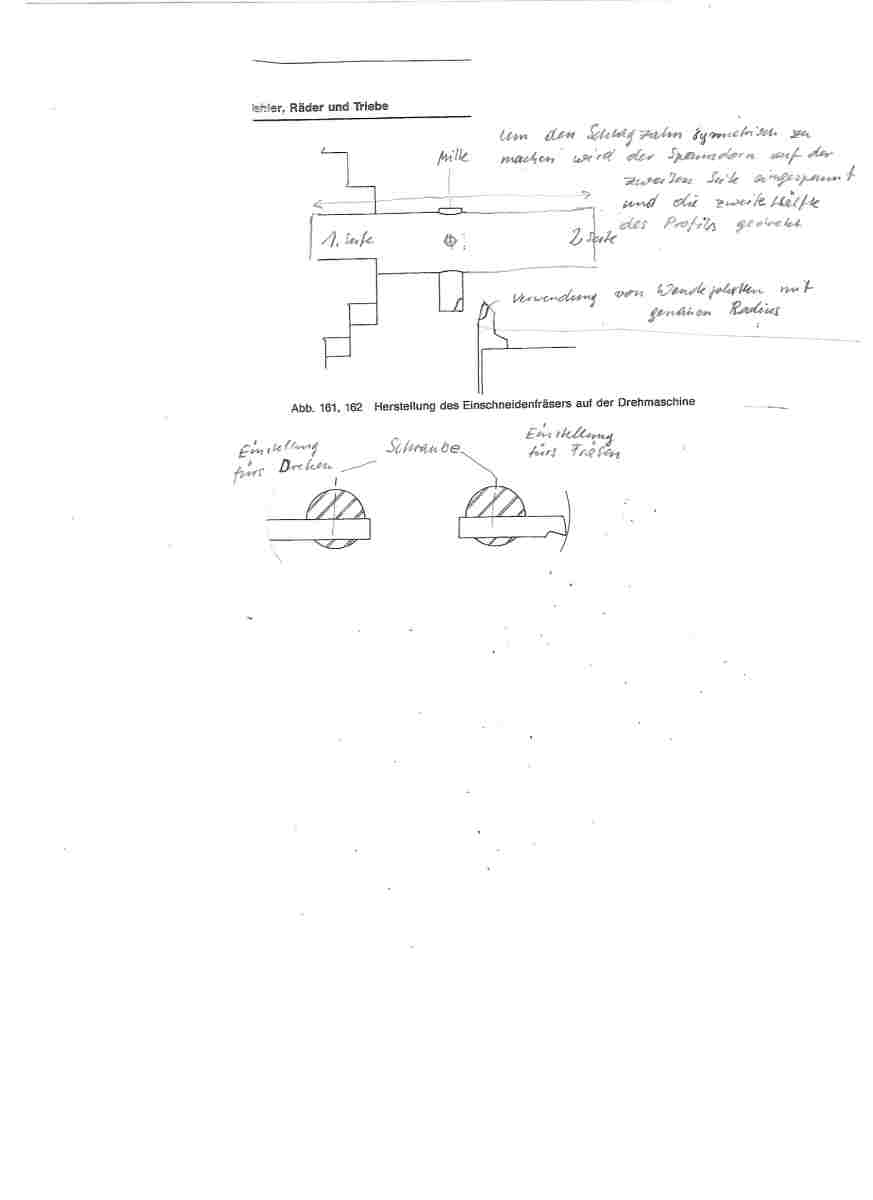 ehler, Räder und Triebe
Um den Schlagzahn symmetrisch zu
Mitte
machen wird der Spanndorn auf der
zweiten Seite eingespannt
und die zweite Hälfte
des Profils gedreht
1. Seite
2 Seite
Verwendung von Wendeplatten mit
genauen Radius
Abb. 161, 162 Herstellung des Einschneidenfräsers auf der Drehmaschine
Einstellung
fürs Drehen
Schraube
Einstellung
fürs Fräsen